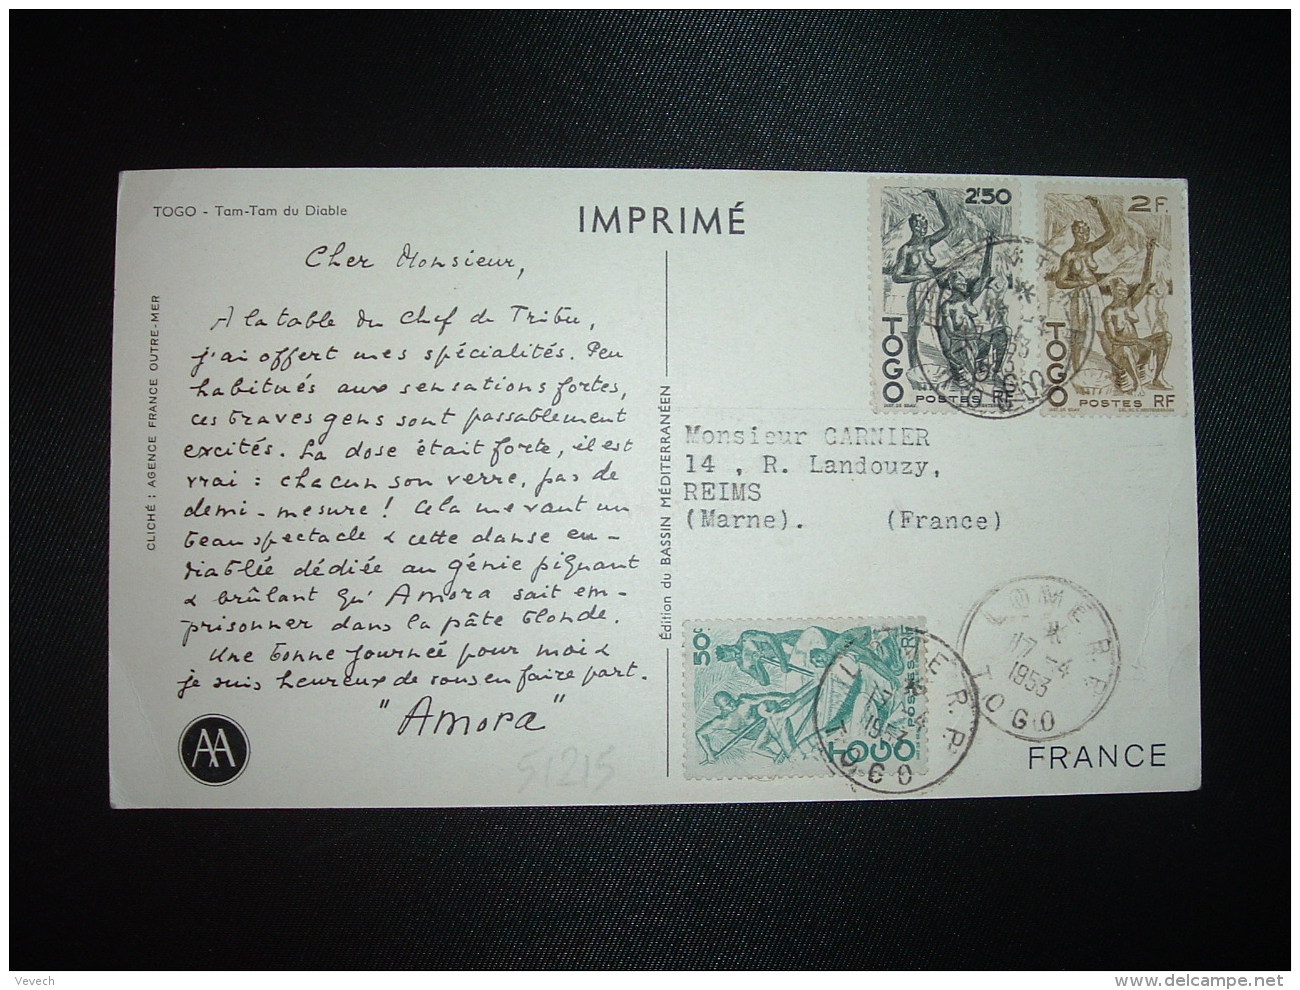 TOGO - Tam-Tam du Diable
IMPRIMÉ
Cher Monsieur,
A la table du Chef de Tribu,
j'ai offert mes spécialités. Peu
habitués aux sensations fortes,
ces braves gens sont passablement
excités. La dose était forte, il est
vrai : chacun son verre, pas de
demi-mesure ! Cela me vaut un
beau spectacle & cette danse en-
diablée dédiée au génie piquant
& brûlant qu'Amora sait em-
prisonner dans la pâte blonde.
Une bonne journée pour moi &
je suis heureux de vous en faire part.
"Amora"
AA
51215
CLICHÉ : AGENCE FRANCE OUTRE-MER
Édition du BASSIN MÉDITERRANÉEN
2F50
TOGO
POSTES RF
2F.
TOGO
POSTES RF
Monsieur GARNIER
14 , R. Landouzy,
REIMS
(Marne). (France)
50c
TOGO
POSTES
RF
LOMÉ R.P.
17 -4
1953
TOGO
LOMÉ R.P.
17 -4
1953
TOGO
FRANCE
Vevech
www.delcampe.net